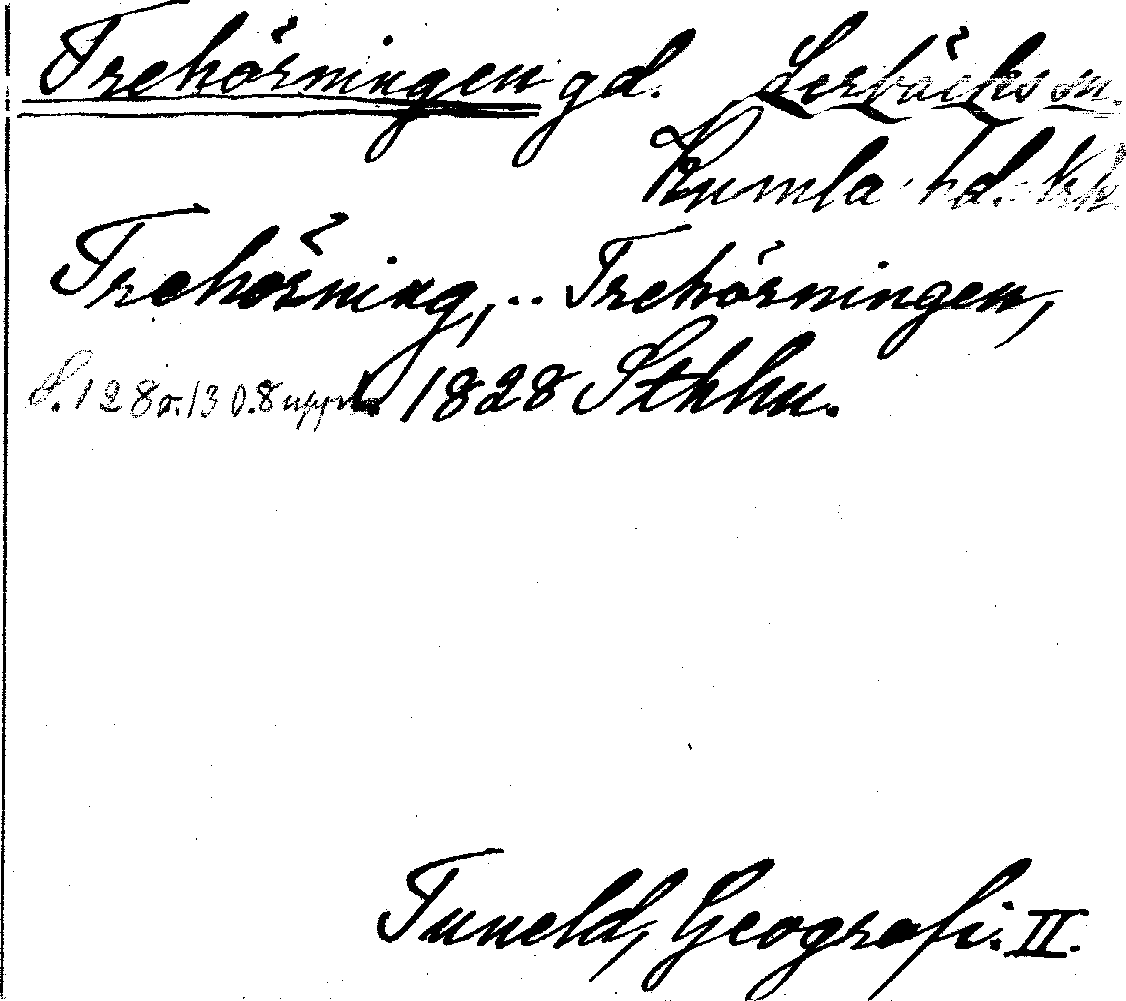 Trehörningen gd. Lerbäcks sn.
Kumla hd. Nke.
Trehörning, .. Trehörningen,
S. 128 o. 130. 8 uppl. 1828 Sthlm.
Tuneld, Geografi. II.